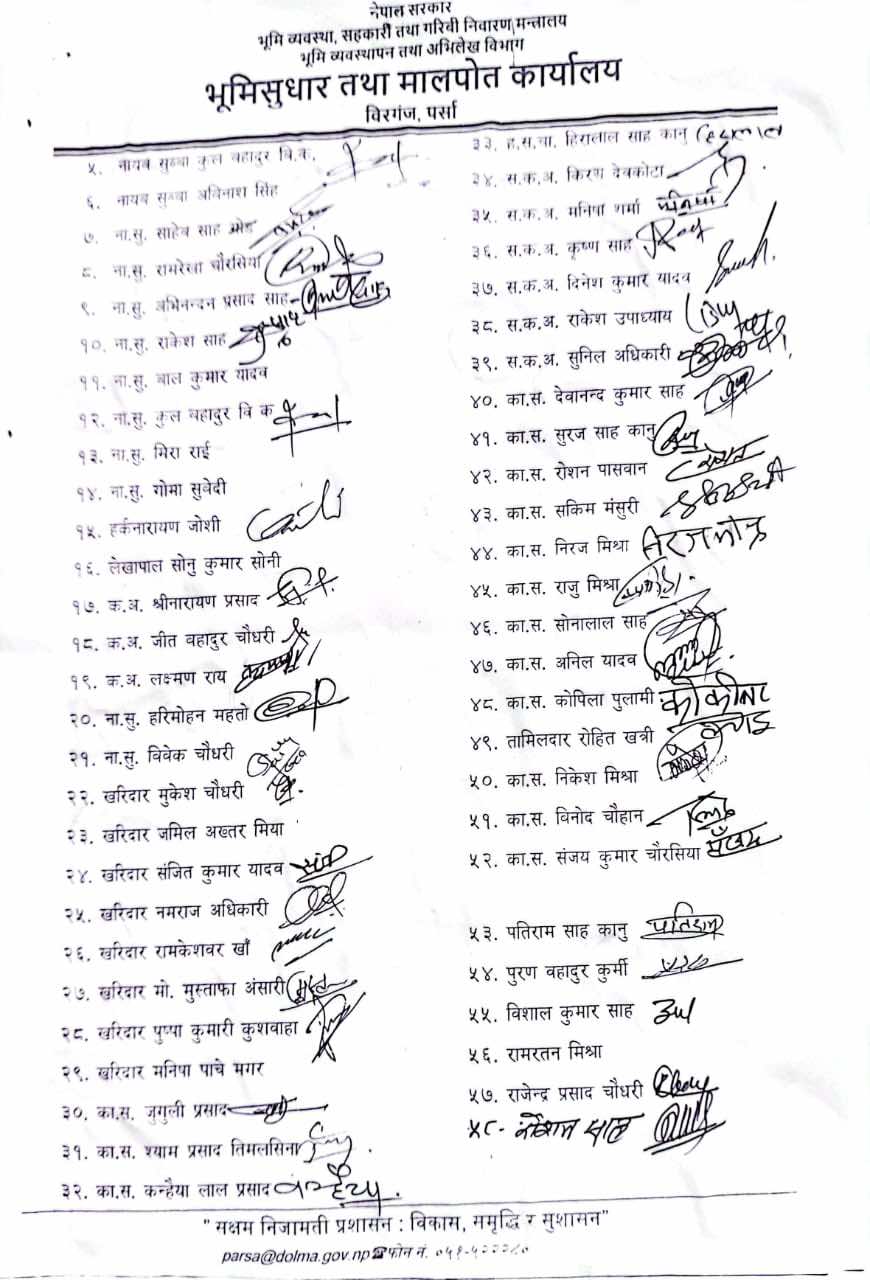 नेपाल सरकार
भूमि व्यवस्था, सहकारी तथा गरिवी निवारण मन्त्रालय
भूमि व्यवस्थापन तथा अभिलेख विभाग
भूमिसुधार तथा मालपोत कार्यालय
विरगंज, पर्सा
५. नायब सुब्बा कुल बहादुर वि.क.
६. नायब सुब्बा अविनाश सिंह
७. ना.सु. साहेब साह
८. ना.सु. रामरेखा चौरसिया
९. ना.सु. अभिनन्दन प्रसाद साह
१०. ना.सु. राकेश साह
११. ना.सु. बाल कुमार यादव
१२. ना.सु. कुल बहादुर वि क
१३. ना.सु. मिरा राई
१४. ना.सु. गोमा सुवेदी
१५. हर्कनारायण जोशी
१६. लेखापाल सोनु कुमार सोनी
१७. क.अ. श्रीनारायण प्रसाद
१८. क.अ. जीत बहादुर चौधरी
१९. क.अ. लक्ष्मण राय
२०. ना.सु. हरिमोहन महतो
२१. ना.सु. विवेक चौधरी
२२. खरिदार मुकेश चौधरी
२३. खरिदार जमिल अख्तर मिया
२४. खरिदार संजित कुमार यादव
२५. खरिदार नमराज अधिकारी
२६. खरिदार रामकेशवर खाँ
२७. खरिदार मो. मुस्ताफा अंसारी
२८. खरिदार पुष्पा कुमारी कुशवाहा
२९. खरिदार मनिषा पाचे मगर
३०. का.स. जुगुली प्रसाद
३१. का.स. श्याम प्रसाद तिमलसिना
३२. का.स. कन्हैया लाल प्रसाद कन्हैया
३३. ह.स.चा. हिरालाल साह कानु
३४. स.क.अ. किरण देवकोटा
३५. स.क.अ. मनिषा शर्मा
३६. स.क.अ. कृष्ण साह
३७. स.क.अ. दिनेश कुमार यादव
३८. स.क.अ. राकेश उपाध्याय
३९. स.क.अ. सुनिल अधिकारी
४०. का.स. देवानन्द कुमार साह
४१. का.स. सुरज साह कानु
४२. का.स. रोशन पासवान
४३. का.स. सकिम मंसुरी
४४. का.स. निरज मिश्रा
४५. का.स. राजु मिश्रा
४६. का.स. सोनालाल साह
४७. का.स. अनिल यादव
४८. का.स. कोपिला पुलामी
४९. तामिलदार रोहित खत्री
५०. का.स. निकेश मिश्रा
५१. का.स. विनोद चौहान
५२. का.स. संजय कुमार चौरसिया
५३. पतिराम साह कानु
५४. पुरण बहादुर कुर्मी
५५. विशाल कुमार साह
५६. रामरतन मिश्रा
५७. राजेन्द्र प्रसाद चौधरी
५८- साह
" सक्षम निजामती प्रशासन : विकास, समृद्धि र सुशासन"
parsa@dolma.gov.np ☎फोन नं.